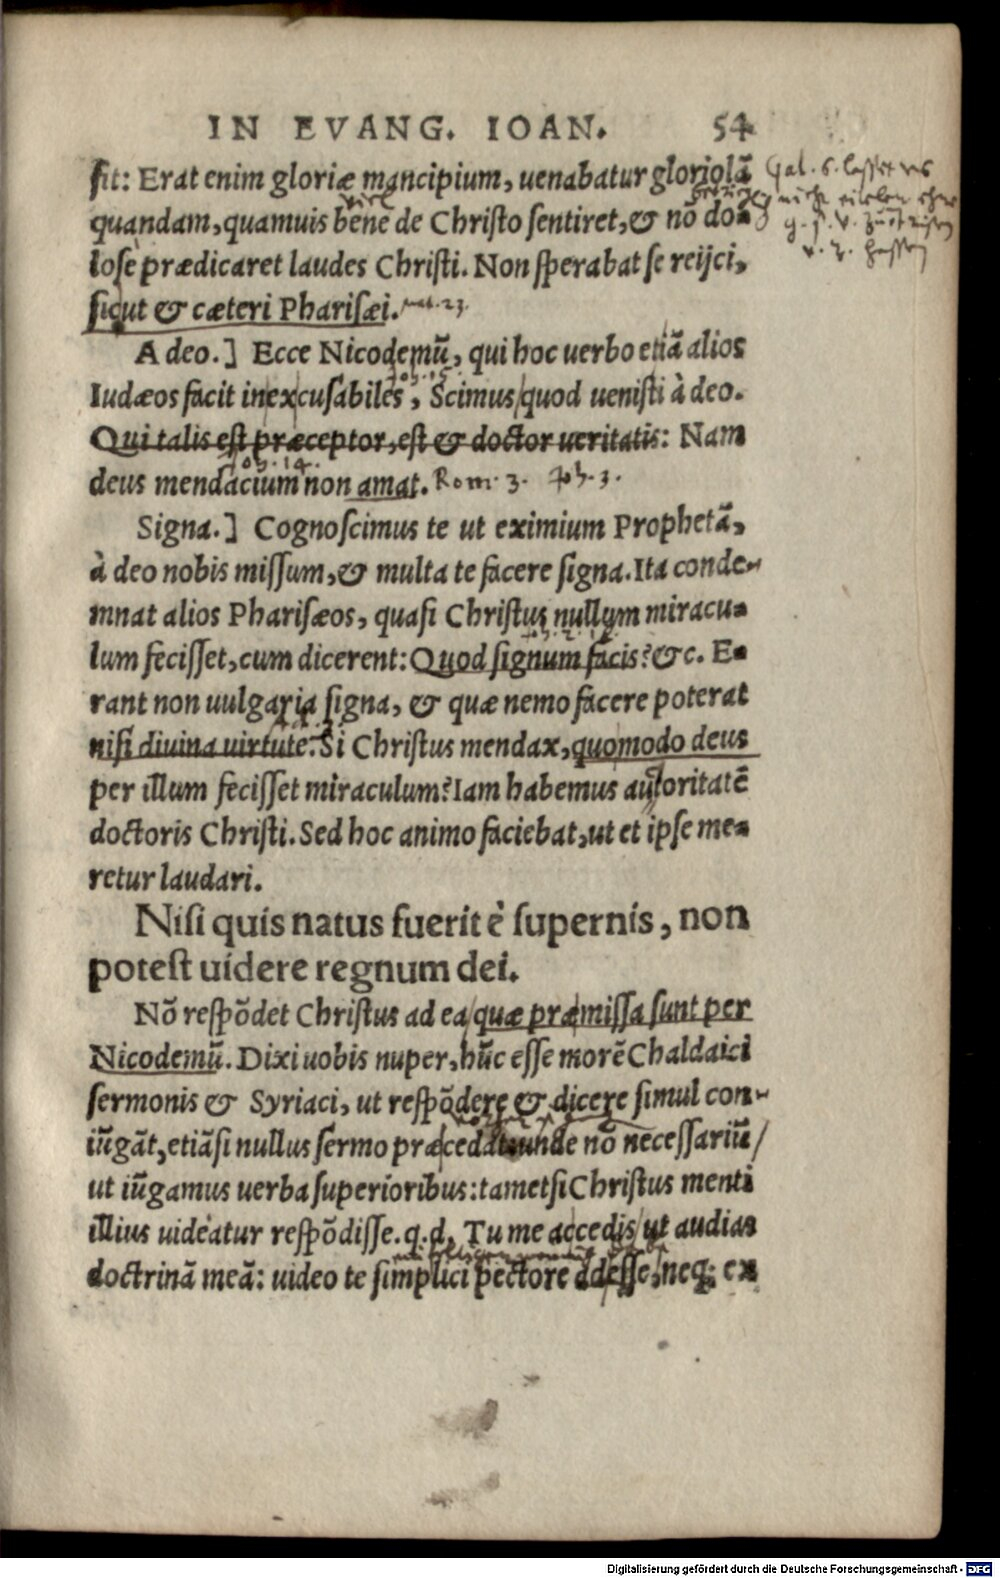 IN EVANG. IOAN. 54
sit: Erat enim gloriæ mancipium, uenabatur gloriolã
quandam, quamuis bene de Christo sentiret, & nõ do-
lose prædicaret laudes Christi. Non sperabat se reijci,
sicut & cæteri Pharisæi. mat. 23.
A deo.] Ecce Nicodemũ, qui hoc uerbo etiã alios
Iudæos facit inexcusabiles, Scimus quod uenisti à deo.
Qui talis est præceptor, est & doctor ueritatis: Nam
Joh. 14.
deus mendacium non amat. Rom. 3. Joh. 3.
Signa.] Cognoscimus te ut eximium Prophetã,
à deo nobis missum, & multa te facere signa. Ita conde-
mnat alios Pharisæos, quasi Christus nullum miracu-
lum fecisset, cum dicerent: Quod signum facis? &c. E-
rant non uulgaria signa, & quæ nemo facere poterat
nisi diuina uirtute. Si Christus mendax, quomodo deus
per illum fecisset miraculum? Iam habemus autoritatẽ
doctoris Christi. Sed hoc animo faciebat, ut et ipse me-
retur laudari.
Nisi quis natus fuerit è supernis, non
potest uidere regnum dei.
Nõ respõdet Christus ad ea quæ præmissa sunt per
Nicodemũ. Dixi uobis nuper, hũc esse morẽ Chaldaici
sermonis & Syriaci, ut respõdere & dicere simul con-
iũgãt, etiãsi nullus sermo præcedat: unde nõ necessariũ
ut iũgamus uerba superioribus: tametsi Christus menti
illius uideatur respõdisse. q. d. Tu me accedis ut audias
doctrinã meã: uideo te simplici pectore adesse, neq; ex
Gal. 6.
Digitalisierung gefördert durch die Deutsche Forschungsgemeinschaft - DFG